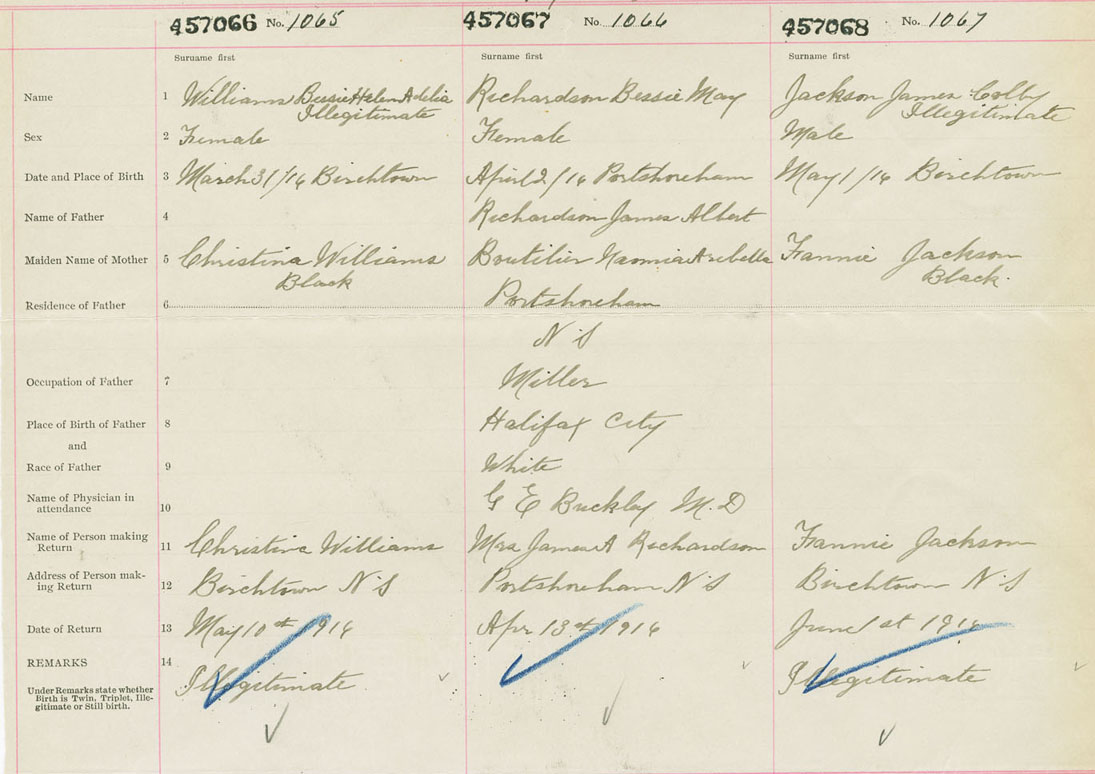 457066 No. 1065 457067 No. 1066 457068 No. 1067
Surname first Surname first Surname first
Name 1 Williams Bessie Helen Adelia Richardson Bessie May Jackson James Colby
Illegitimate Illegitimate
Sex 2 Female Female Male
Date and Place of Birth 3 March 31/16 Birchtown April 2/16 Portshoreham May 1/16 Birchtown
Name of Father 4 Richardson James Albert
Maiden Name of Mother 5 Christina Williams Boutilier Naomia Arebella Fannie Jackson
Black Black.
Residence of Father 6 Portshoreham
N S
Occupation of Father 7 Miller
Place of Birth of Father 8 Halifax City
and
Race of Father 9 White
Name of Physician in
attendance 10 G E Buckley M.D
Name of Person making
Return 11 Christina Williams Mrs James A Richardson Fannie Jackson
Address of Person mak-
ing Return 12 Birchtown N S Portshoreham N S Birchtown N S
Date of Return 13 May 10th 1916 Apr 13th 1916 June 1st 1916
REMARKS 14 Illegitimate Illegitimate
Under Remarks state whether
Birth is Twin, Triplet, Ille-
gitimate or Still birth.